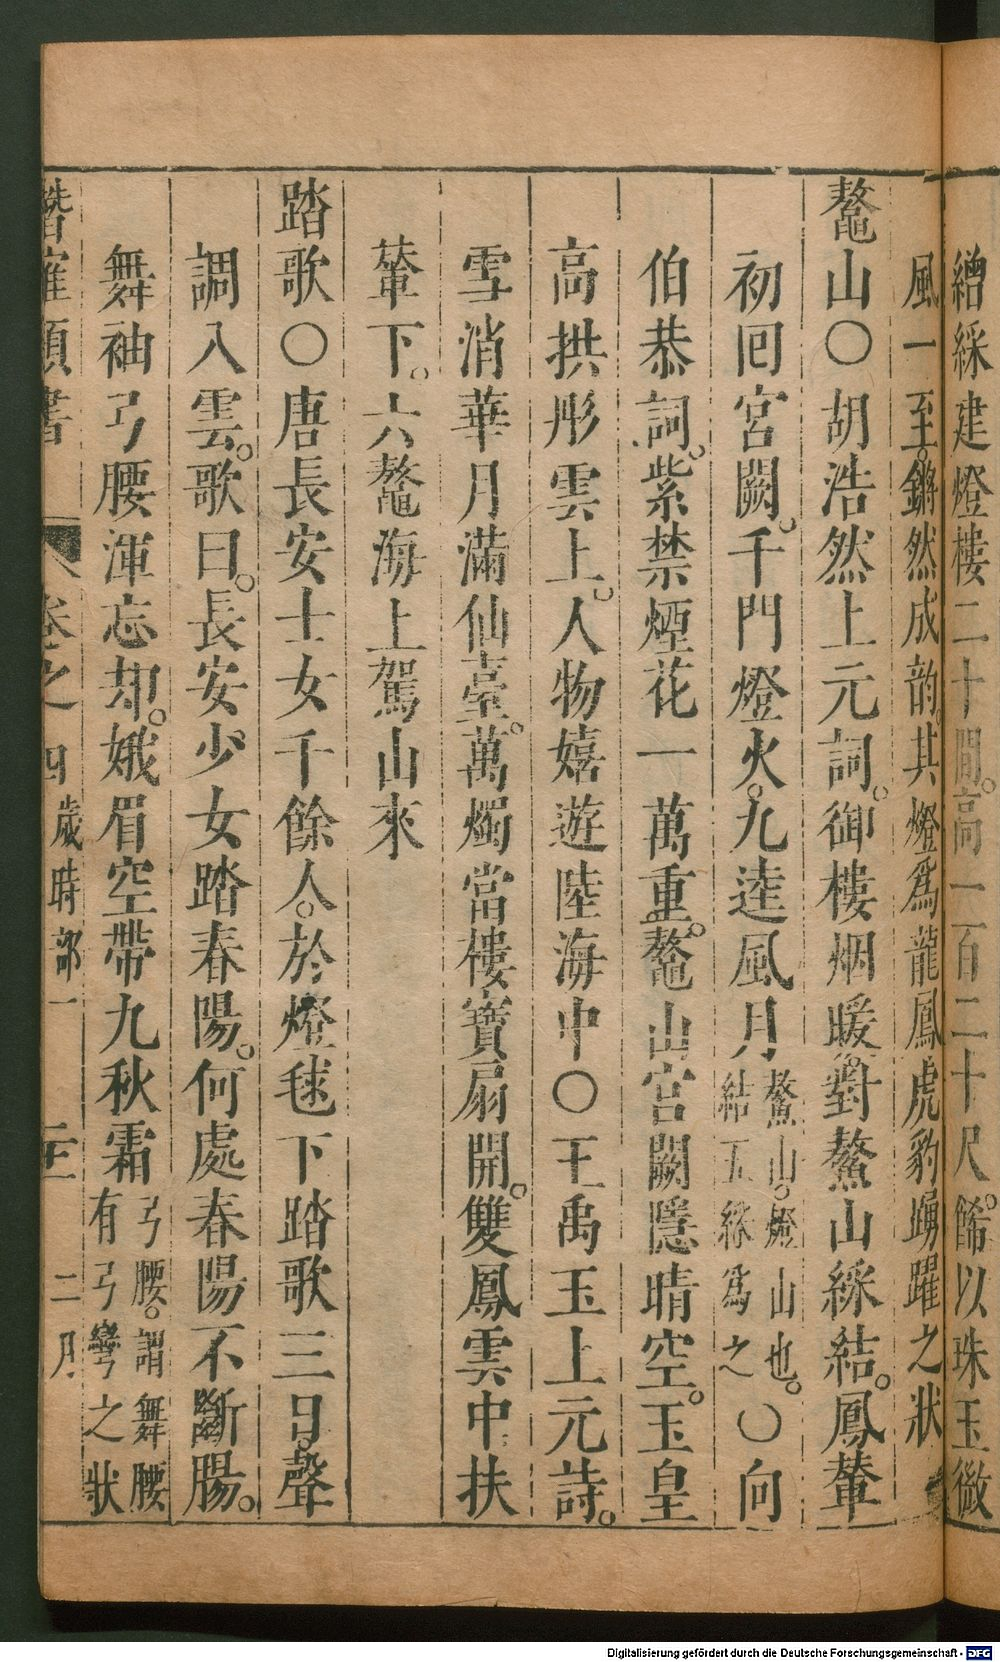 繒綵建燈樓二十間。高一百二十尺。餙以珠玉微
風一至。鏘然成韵。其燈爲龍鳳虎豹踴躍之狀
鼇山〇胡浩然上元詞。御樓烟暖。對鰲山綵結。鳳輦
初囘宮闕。千門燈火。九逵風月鰲山。燈山也。結五綵爲之〇向
伯恭詞。紫禁煙花一萬重。鼇山宮闕隱晴空。玉皇
高拱彤雲上。人物嬉遊陸海中〇王禹玉上元詩。
雪消華月滿仙臺。萬燭當樓寶扇開。雙鳳雲中扶
輦下。六鼇海上駕山來
踏歌〇唐長安士女千餘人。於燈毬下踏歌三日。聲
調入雲。歌曰。長安少女踏春陽。何處春陽不斷腸。
舞袖弓腰渾忘却。娥眉空帶九秋霜弓腰。謂舞腰有弓彎之狀
潛確類書 卷之四 歲時部一 二月
Digitalisierung gefördert durch die Deutsche Forschungsgemeinschaft - DFG